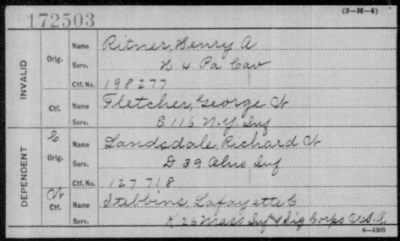 172503 (3-H-4)
INVALID
Orig. Name Ritner, Henry A
Serv. H 4 Pa Cav
Ctf. No. 198277
Ctf. Name Fletcher, George W
Serv. B 116 N.Y. Inf
DEPENDENT
Orig. Name Landsdale, Richard W
Serv. D 39 Ohio Inf
Ctf. No. 127718
Ctf. Name Stebbins, Lafayette C
Serv. K 26 Mass Inf & Sig Corps U.S.A